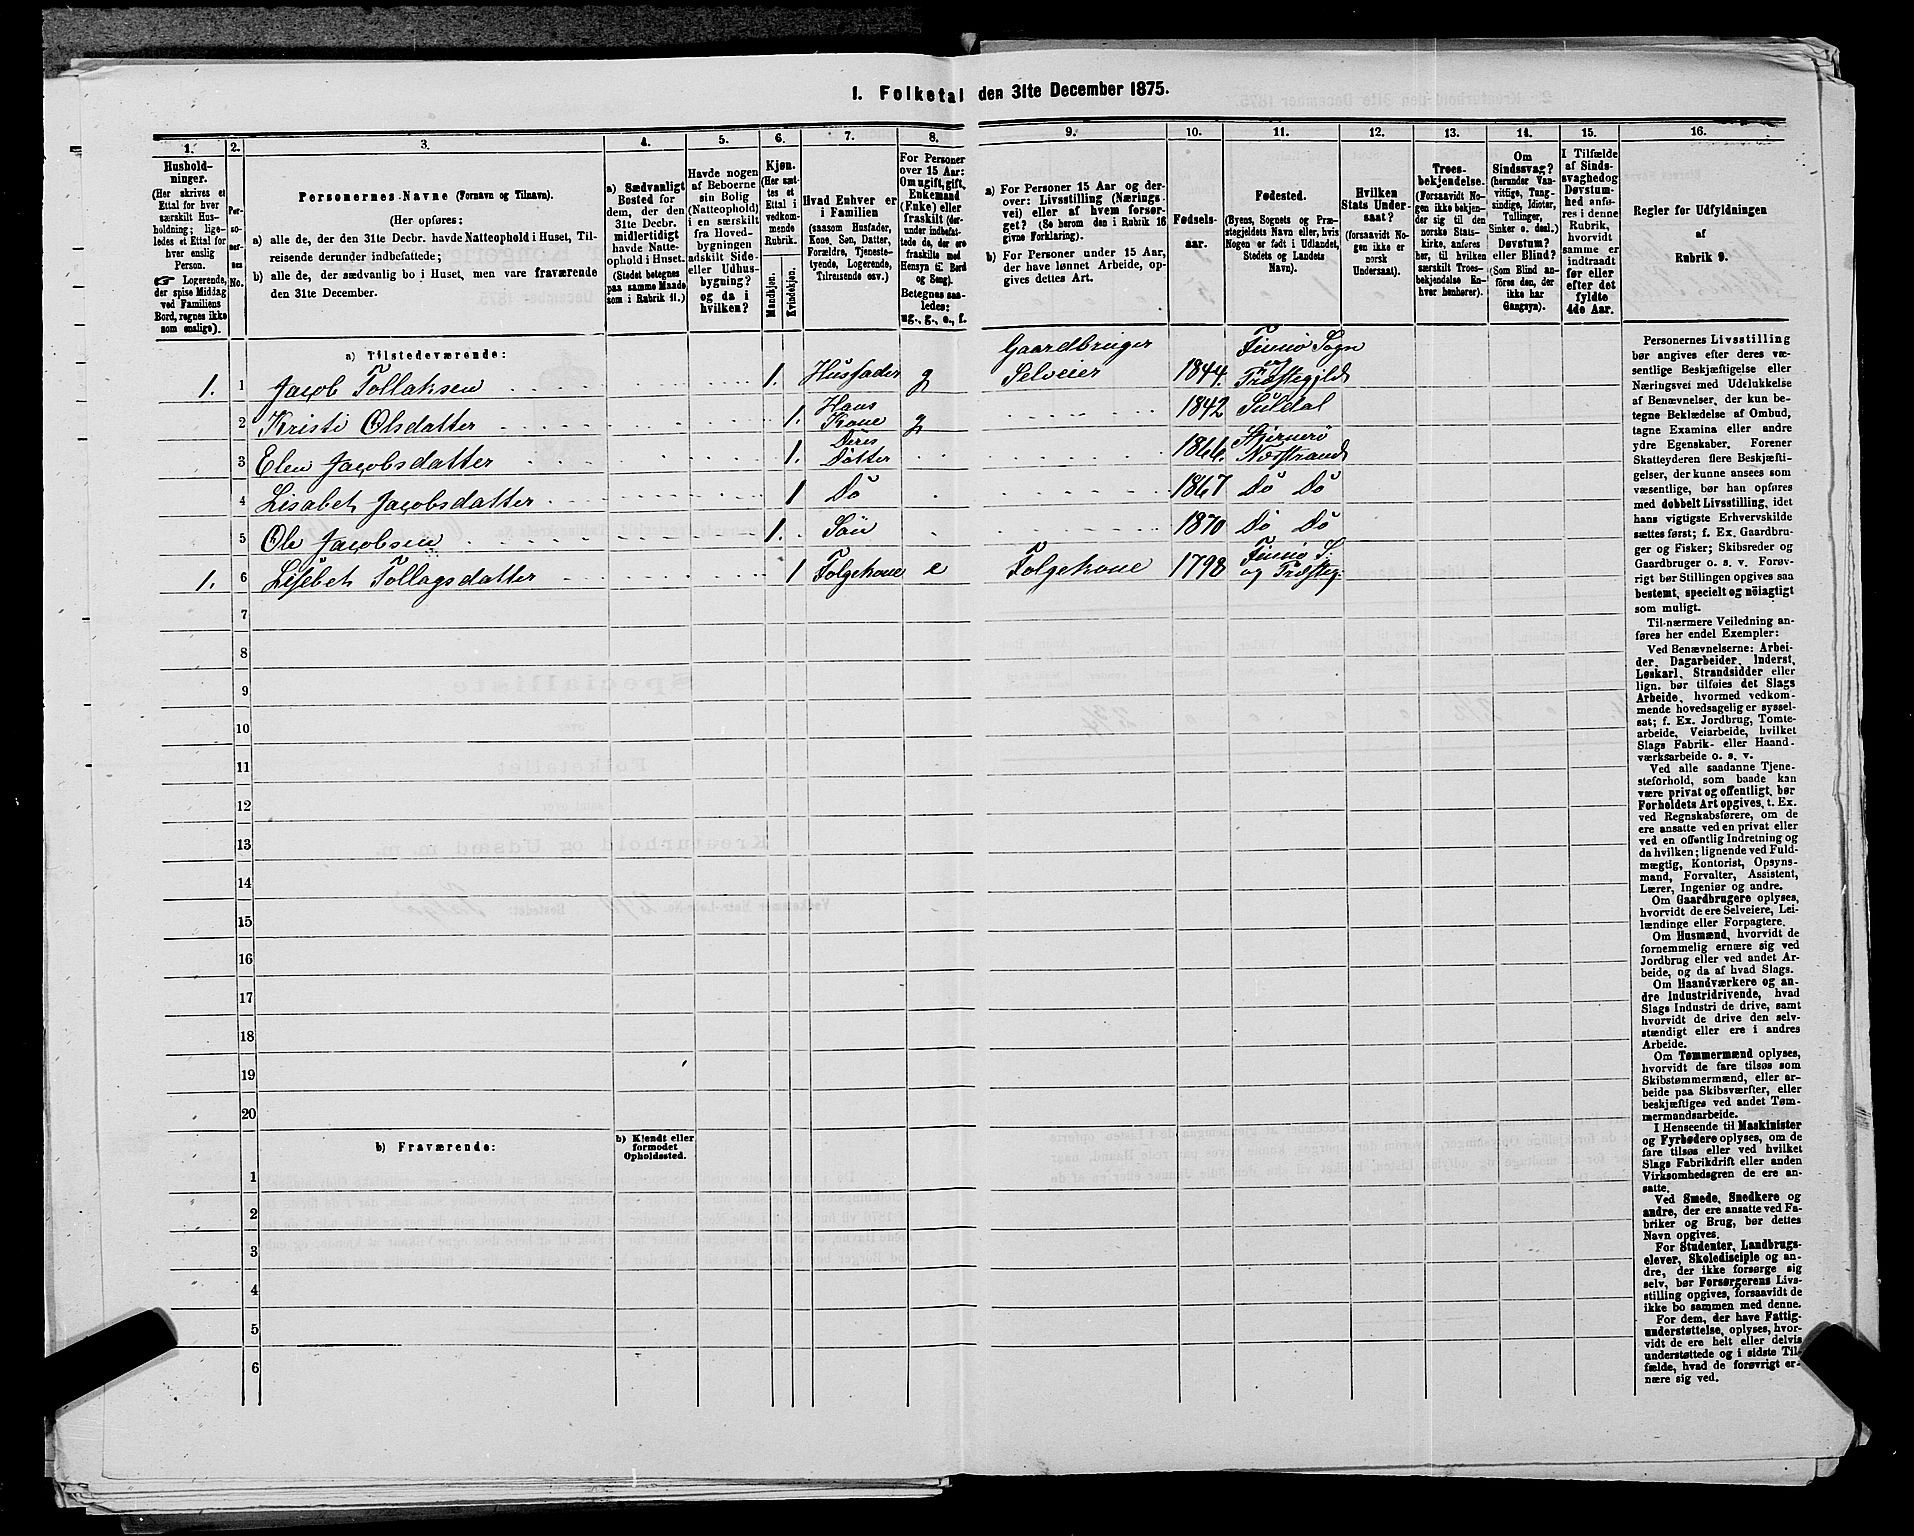 1. Folketal den 31te December 1875.
1.
2.
3.
4.
5.
6.
7.
8.
9.
10.
11.
12.
13.
14.
15.
16.
Hushold-
ninger.
(Her skrives et
Ettal for hver
særskilt Hus-
holdning; lige-
ledes et Ettal for
hver enslig
Person.
☞ Logerende,
der spise Middag
ved Familiens
Bord, regnes ikke
som enslige).
Per-
so-
ner-
nes
No.
Personernes Navne (Fornavn og Tilnavn).
(Her opføres:
a) alle de, der den 31te Decbr. havde Natteophold i Huset, Til-
reisende derunder indbefattede;
b) alle de, der sædvanlig bo i Huset, men vare fraværende
den 31te December.
a) Sædvanligt
Bosted for
dem, der den
31te Decbr.
midlertidigt
havde Natte-
ophold i Huset.
(Stedet betegnes
paa samme Maade
som i Rubrik 11.)
Havde nogen
af Beboerne
sin Bolig
(Natteophold)
i en særskilt
fra Hoved-
bygningen
adskilt Side-
eller Udhus-
bygning?
og da i
hvilken?
Kjøn.
(Her sæt-
tes et
Ettal i
vedkom-
mende
Rubrik.
Mandkjøn.
Kvindekjøn.
Hvad Enhver er
i Familien
(saasom Husfader,
Kone, Søn, Datter,
Forældre, Tjeneste-
tyende, Logerende,
Tilreisende osv.)
For Personer
over 15 Aar:
Om ugift, gift,
Enkemand
(Enke) eller
fraskilt (der-
under indbefat-
tede de, der ere
fraskilte med
Hensyn til Bord
og Seng).
Betegnes saa-
ledes:
ug., g., e., f.
a) For Personer 15 Aar og der-
over: Livsstilling (Nærings-
vei) eller af hvem forsør-
get? (Se herom den i Rubrik 16
givne Forklaring).
b) For Personer under 15 Aar,
der have lønnet Arbeide, op-
gives dettes Art.
Fødsels-
aar.
Fødested.
(Byens, Sognets og Præ-
stegjeldets Navn eller, hvis
Nogen er født i Udlandet,
Stedets og Landets
Navn).
Hvilken
Stats Under-
saat?
(forsaavidt No-
gen ikke er
norsk
Undersaat).
Troes-
bekjendelse.
(Forsaavidt No-
gen ikke bekjen-
der sig til den
norske Stats-
kirke, anføres
her, til hvilken
særskilt Troes-
bekjendelse En-
hver henhører).
Om
Sindssvag?
(herunder Van-
vittige, Tung-
sindige, Idioter,
Tullinger,
Sinker o. desl.)
Døvstum?
eller Blind?
(Som Blind an-
føres den, der
ikke har
Gangsyn).
I Tilfælde
af Sinds-
svaghed og
Døvstum-
hed anfø-
res i denne
Rubrik,
hvorvidt
samme er
indtraadt
før eller
efter det
fyldte
4de Aar.
Regler for Udfyldningen
af
Rubrik 9.
a) Tilstedeværende:
1. 1 Jacob Tollaksen 1. Husfader g Gaardbruger Selveier 1844. Finnø Sogn og Præstegjeld
2 Kristi Olsdatter 1. Hans Kone g 1842 Suldal
3 Elen Jacobsdatter 1. Deres Datter 1866. Stjernerø Næstrand
4 Lisabet Jacobsdatter 1 Do 1867 Do Do
5 Ole Jacobsen 1. Søn 1870 Do Do
1. 6 Lisebet Tollagsdatter 1 Folgekone e Folgekone 1798 Finnø S. og Præsteg.
7
8
9
10
11
12
13
14
15
16
17
18
19
20
b) Fraværende:
b) Kjendt eller
formodet
Opholdssted.
1
2
3
4
5
6
Personernes Livsstilling
bør angives efter deres væ-
sentlige Beskjæftigelse eller
Næringsvei med Udelukkelse
af Benævnelser, der kun be-
tegne Beklædelse af Ombud,
tagne Examina eller andre
ydre Egenskaber. Forener
Skatteyderen flere Beskjæfti-
gelser, der kunne ansees som
væsentlige, bør han opføres
med dobbelt Livsstilling, idet
hans vigtigste Erhvervskilde
sættes først; f. Ex. Gaardbru-
ger og Fisker; Skibsreder og
Gaardbruger o. s. v. Forøv-
rigt bør Stillingen opgives saa
bestemt, specielt og nöiagtigt
som muligt.
Til nærmere Veiledning an-
føres her endel Exempler:
Ved Benævnelserne: Arbei-
der, Dagarbeider, Inderst,
Løskarl, Strandsidder eller
lign. bør tilføies det Slags
Arbeide, hvormed vedkom-
mende hovedsagelig er syssel-
sat; f. Ex. Jordbrug, Tomte-
arbeide, Veiarbeide, hvilket
Slags Fabrik- eller Haand-
værksarbeide o. s. v.
Ved alle saadanne Tjene-
steforhold, som baade kan
være privat og offentligt, bør
Forholdets Art opgives, t. Ex.
ved Regnskabsførere, om de
ere ansatte ved en privat eller
ved en offentlig Indretning og
da hvilken; lignende ved Fuld-
mægtig, Kontorist, Opsyns-
mand, Forvalter, Assistent,
Lærer, Ingeniør og andre.
Om Gaardbrugere oplyses,
hvorvidt de ere Selveiere, Lei-
lændinge eller Forpagtere.
Om Husmænd, hvorvidt de
fornemmelig ernære sig ved
Jordbrug eller ved andet Ar-
beide, og da af hvad Slags.
Om Haandværkere og an-
dre Industridrivende, hvad
Slags Industri de drive, samt
hvorvidt de drive den selv-
stændigt eller ere i andres
Arbeide.
Om Tømmermænd oplyses,
hvorvidt de fare tilsøs som
Skibstømmermænd, eller ar-
beide paa Skibsværfter, eller
beskjæftiges ved andet Tøm-
mermandsarbeide.
I Henseende til Maskinister
og Fyrbødere oplyses, om de
fare tilsøs eller ved hvilket
Slags Fabrikdrift eller anden
Virksomhedsgren de ere an-
satte.
Ved Smede, Snedkere og
andre, der ere ansatte ved Fa-
briker og Brug, bør dettes
Navn opgives.
For Studenter, Landbrugs-
elever, Skoledisciple og an-
dre, der ikke forsørge sig
selv, bør Forsørgerens Livs-
stilling opgives, forsaavidt de
ikke bo sammen med denne.
For dem, der have Fattig-
understøttelse, oplyses, hvor-
vidt de ere helt eller delvis
understøttede og i sidste Til-
fælde, hvad de forøvrigt er-
nære sig ved.